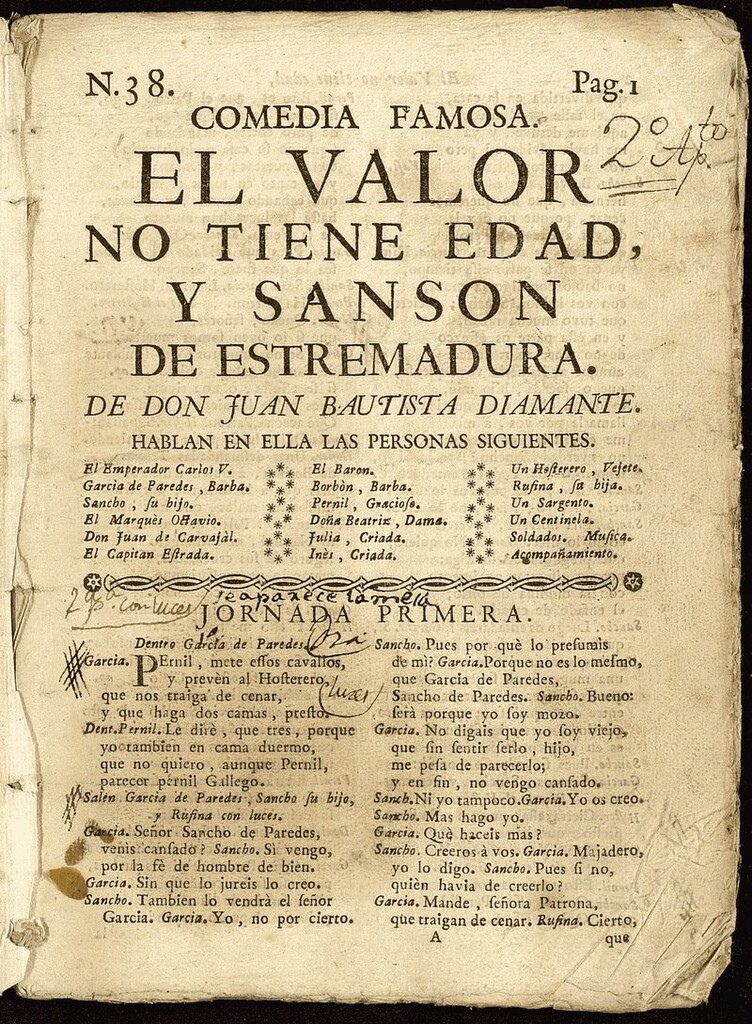 N. 38. Pag. 1
COMEDIA FAMOSA.
2º Ap.to
EL VALOR
NO TIENE EDAD,
Y SANSON
DE ESTREMADURA.
DE DON JUAN BAUTISTA DIAMANTE.
HABLAN EN ELLA LAS PERSONAS SIGUIENTES.
El Emperador Carlos V.
Garcia de Paredes, Barba.
Sancho, ſu hijo.
El Marquès Octavio.
Don Juan de Carvajàl.
El Capitan Eſtrada.
El Baron.
Borbòn, Barba.
Pernil, Gracioſo.
Doña Beatriz, Dama.
Julia, Criada.
Inès, Criada.
Un Hoſterero, Vejete.
Rufina, ſu hija.
Un Sargento.
Un Centinela.
Soldados. Muſica.
Acompañamiento.
con luces
JORNADA PRIMERA.
Dentro Garcia de Paredes.
Garcia. PErnil, mete eſſos cavallos,
y prevèn al Hoſterero,
que nos traiga de cenar,
(luces)
y que haga dos camas, preſto.
Dent.Pernil. Le dirè, que tres, porque
yo tambien en cama duermo,
que no quiero, aunque Pernil,
parecer pernil Gallego.
Salen Garcia de Paredes, Sancho ſu hijo,
y Rufina con luces.
Garcia. Señor Sancho de Paredes,
venis canſado? Sancho. Sì vengo,
por la fè de hombre de bien.
Garcia. Sin que lo jureis lo creo.
Sancho. Tambien lo vendrà el ſeñor
Garcia. Garcia. Yo, no por cierto.
Sancho. Pues por què lo preſumis
de mì? Garcia. Porque no es lo meſmo,
que Garcia de Paredes,
Sancho de Paredes. Sancho. Bueno:
ſerà porque yo ſoy mozo.
Garcia. No digais que yo ſoy viejo,
que ſin ſentir ſerlo, hijo,
me peſa de parecerlo;
y en fin, no vengo canſado.
Sanch. Ni yo tampoco. Garcia. Yo os creo.
Sancho. Mas hago yo.
Garcia. Què haceis mas?
Sancho. Creeros à vos. Garcia. Majadero,
yo lo digo. Sancho. Pues ſi no,
quièn havia de creerlo?
Garcia. Mande, ſeñora Patrona,
que traigan de cenar. Rufina. Cierto,
A que